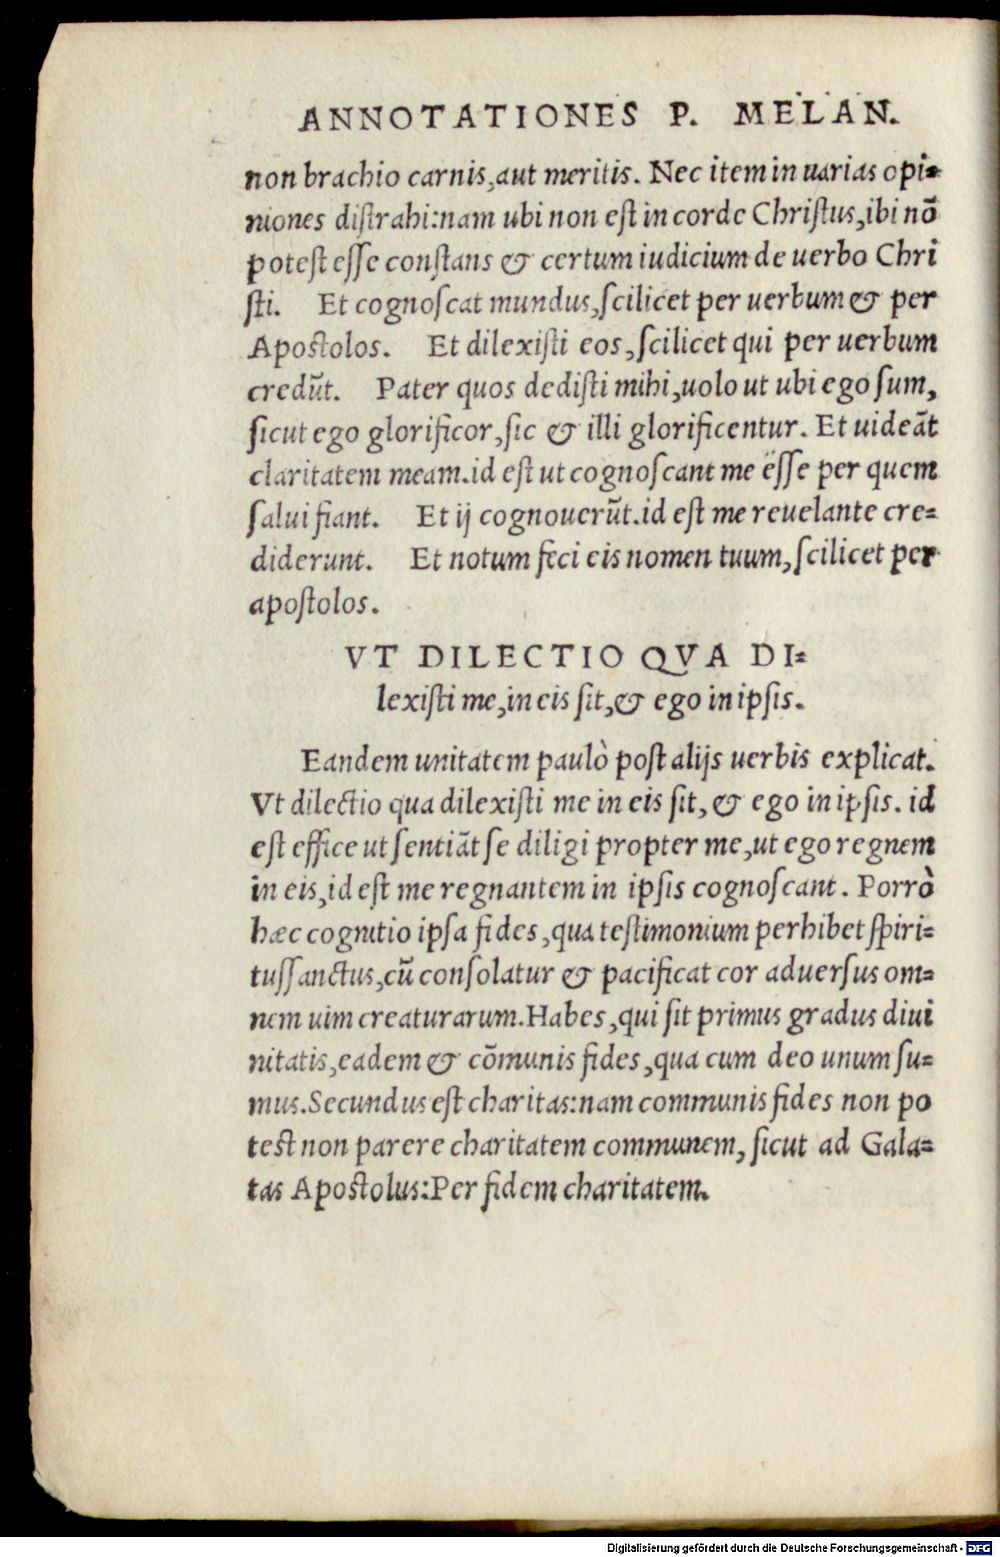 ANNOTATIONES P. MELAN.
non brachio carnis, aut meritis. Nec item in uarias opi-
niones distrahi: nam ubi non est in corde Christus, ibi nõ
potest esse constans & certum iudicium de uerbo Chri
sti. Et cognoscat mundus, scilicet per uerbum & per
Apostolos. Et dilexisti eos, scilicet qui per uerbum
credũt. Pater quos dedisti mihi, uolo ut ubi ego sum,
sicut ego glorificor, sic & illi glorificentur. Et uideãt
claritatem meam. id est ut cognoscant me esse per quem
salui fiant. Et ij cognouerũt. id est me reuelante cre-
diderunt. Et notum feci eis nomen tuum, scilicet per
apostolos.
VT DILECTIO QVA DI-
lexisti me, in eis sit, & ego in ipsis.
Eandem unitatem paulò post alijs uerbis explicat.
Vt dilectio qua dilexisti me in eis sit, & ego in ipsis. id
est effice ut sentiãt se diligi propter me, ut ego regnem
in eis, id est me regnantem in ipsis cognoscant. Porrò
hæc cognitio ipsa fides, qua testimonium perhibet spiri-
tussanctus, cũ consolatur & pacificat cor aduersus om-
nem uim creaturarum. Habes, qui sit primus gradus diui
nitatis, eadem & cõmunis fides, qua cum deo unum su-
mus. Secundus est charitas: nam communis fides non po
test non parere charitatem communem, sicut ad Gala-
tas Apostolus: Per fidem charitatem.
Digitalisierung gefördert durch die Deutsche Forschungsgemeinschaft - DFG